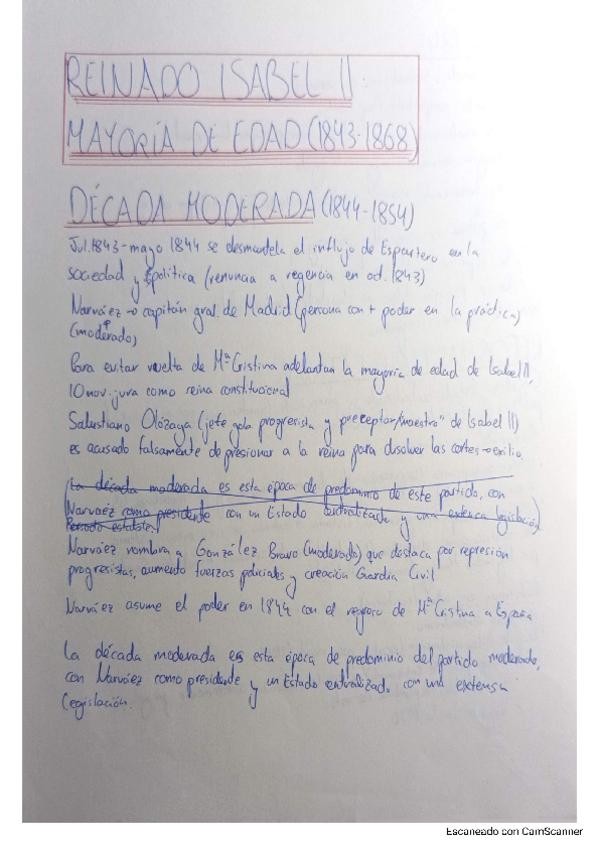 REINADO ISABEL II
MAYORÍA DE EDAD (1843-1868)
DÉCADA MODERADA (1844-1854)
Jul. 1843-mayo 1844 se desmantela el influjo de Espartero en la
sociedad y política (renuncia a regencia en oct. 1843)
Narváez → capitán gral. de Madrid (persona con + poder en la práctica)
(moderado)
Para evitar vuelta de Mª Cristina adelantan la mayoría de edad de Isabel II,
10 nov. jura como reina constitucional
Salustiano Olózaga (jefe gob progresista y preceptor/"maestro" de Isabel II)
es acusado falsamente de presionar a la reina para disolver las cortes → exilio.
(La década moderada es esta época de predominio de este partido, con
Narváez como presidente con un Estado centralizado y una extensa legislación)
Periodo estable
Narváez nombra a González Bravo (moderado) que destaca por represión
progresistas, aumento fuerzas policiales y creación Guardia Civil
Narváez asume el poder en 1844 con el regreso de Mª Cristina a España
La década moderada es esta época de predominio del partido moderado,
con Narváez como presidente y un Estado centralizado con una extensa
legislación.
Escaneado con CamScanner